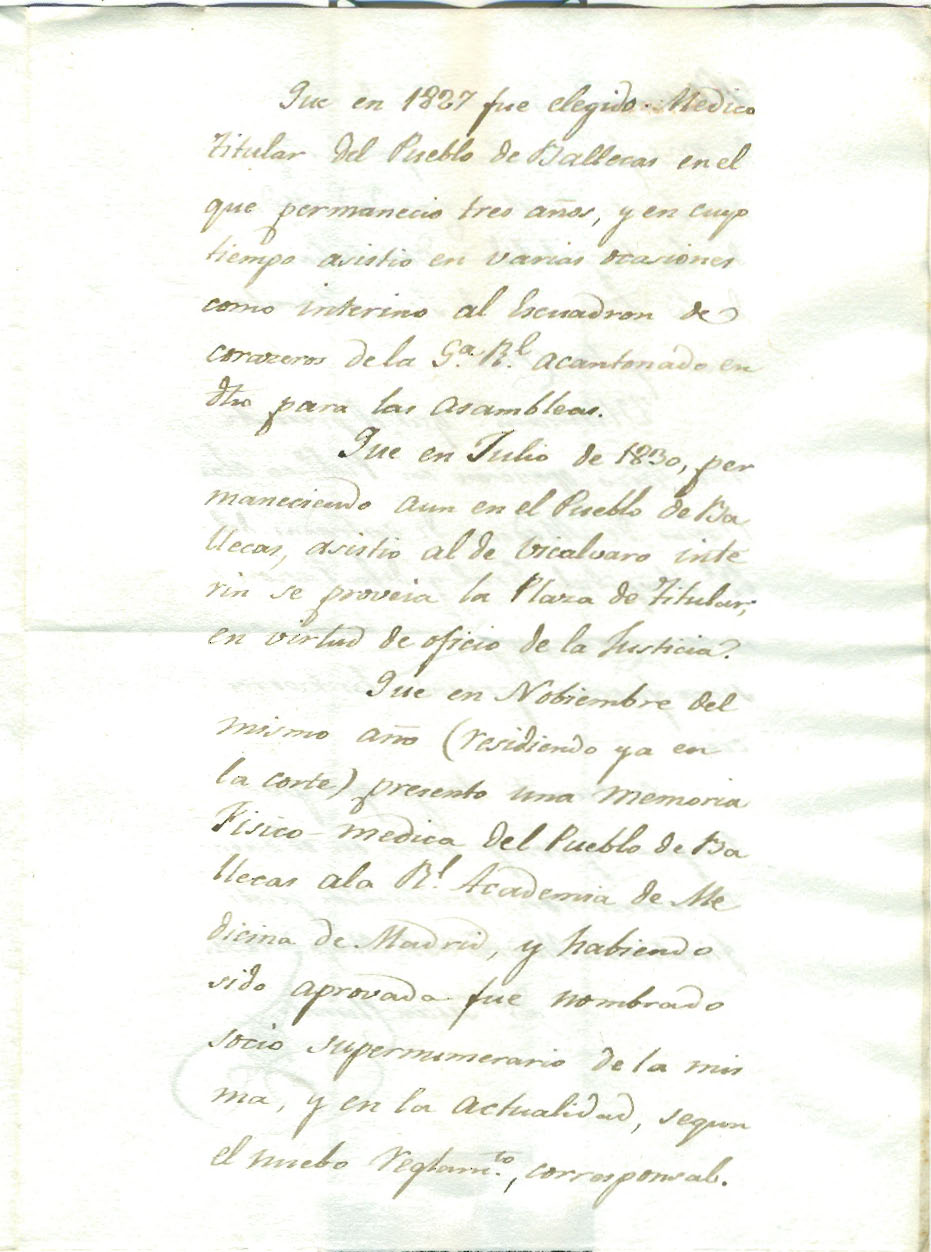 Que en 1827 fue elegido Medico
Titular del Pueblo de Ballecas en el
que permanecio tres años, y en cuyo
tiempo asistio en varias ocasiones
como interino al Escuadron de
corazeros de la G.ª R.l acantonado en
dho para las asambleas.
Que en Julio de 1830, per
maneciendo aun en el Pueblo de Ba
llecas, asistio al de Vicalvaro inte
rin se proveia la Plaza de Titular,
en virtud de oficio de la Justicia.
Que en Nobiembre del
mismo año (residiendo ya en
la corte) presento una memoria
Fisico-medica del Pueblo de Ba
llecas a la R.l Academia de Me
dicina de Madrid, y habiendo
sido aprovada fue nombrado
socio supernumerario de la mis
ma, y en la actualidad, segun
el nuebo reglam.to, corresponsal.